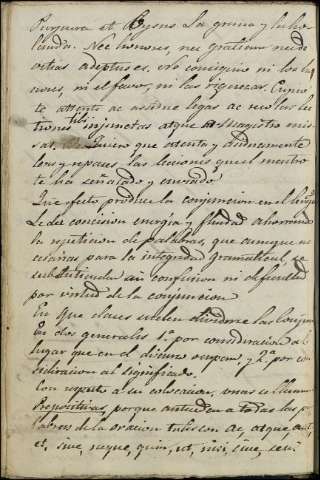 Purpura et Byssus La grana y la ho-
landa. Nec honores, nec gratiam nec di-
vitias adeptus es, no consiguió ni los ho-
nores, ni el favor, ni las riquezas. Cupio
te attente ac assidue legas ac revolas lec
tiones tibi injunctas atque a Magistro mis-
sas. Quiero que atenta y asiduamente
leas y repases las lecciones que el maestro
te ha señalado y enviado
Que efecto produce la conjuncion en el lengua
Le da concision energía y fluidez ahorrando
la repeticion de palabras, que aunque ne
cesarias para la integridad gramatical, se
substituyen sin confusion ni dificultad
por virtud de la conjuncion
En que clases suelen dividirse las conjun
En dos generales 1ª por consideracion al
lugar que en el discurso ocupan y 2ª por con
sideracion al significado.
Con respecto a su colocacion, unas se llaman
Prepositivas, porque anteceden a todas las pa
labras de la oracion tales son ac, atque, aut,
et, sive, neque, quin, ut, nisi, sive, seu